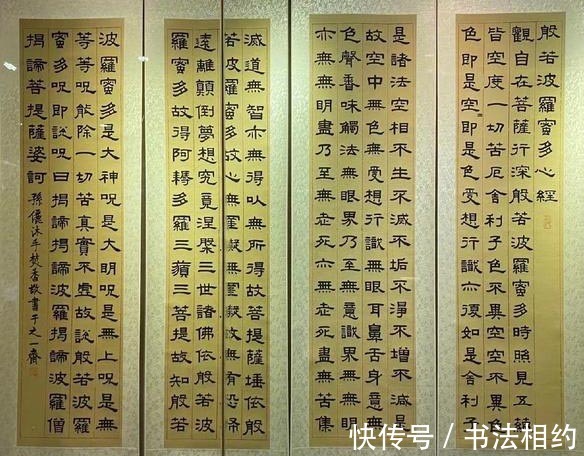 般若波羅蜜多心經
觀自在菩薩行深般若波羅蜜多時照見五蘊
皆空度一切苦厄舍利子色不異空空不異色
色即是空空即是色受想行識亦復如是舍利子
是諸法空相不生不滅不垢不淨不增不減是
故空中無色無受想行識無眼耳鼻舌身意無
色聲香味觸法無眼界乃至無意識界無無明
亦無無明盡乃至無老死亦無老死盡無苦集
滅道無智亦無得以無所得故菩提薩埵依般
若波羅蜜多故心無罣礙無罣礙故無有恐怖
遠離顛倒夢想究竟涅槃三世諸佛依般若波
羅蜜多故得阿耨多羅三藐三菩提故知般若
波羅蜜多是大神呪是大明呪是無上呪是無
等等呪能除一切苦真實不虛故說般若波羅
蜜多呪即說呪曰揭諦揭諦波羅揭諦波羅僧
揭諦菩提薩婆訶 孫沐手焚香敬書于之一齋
快传号 / 书法相约